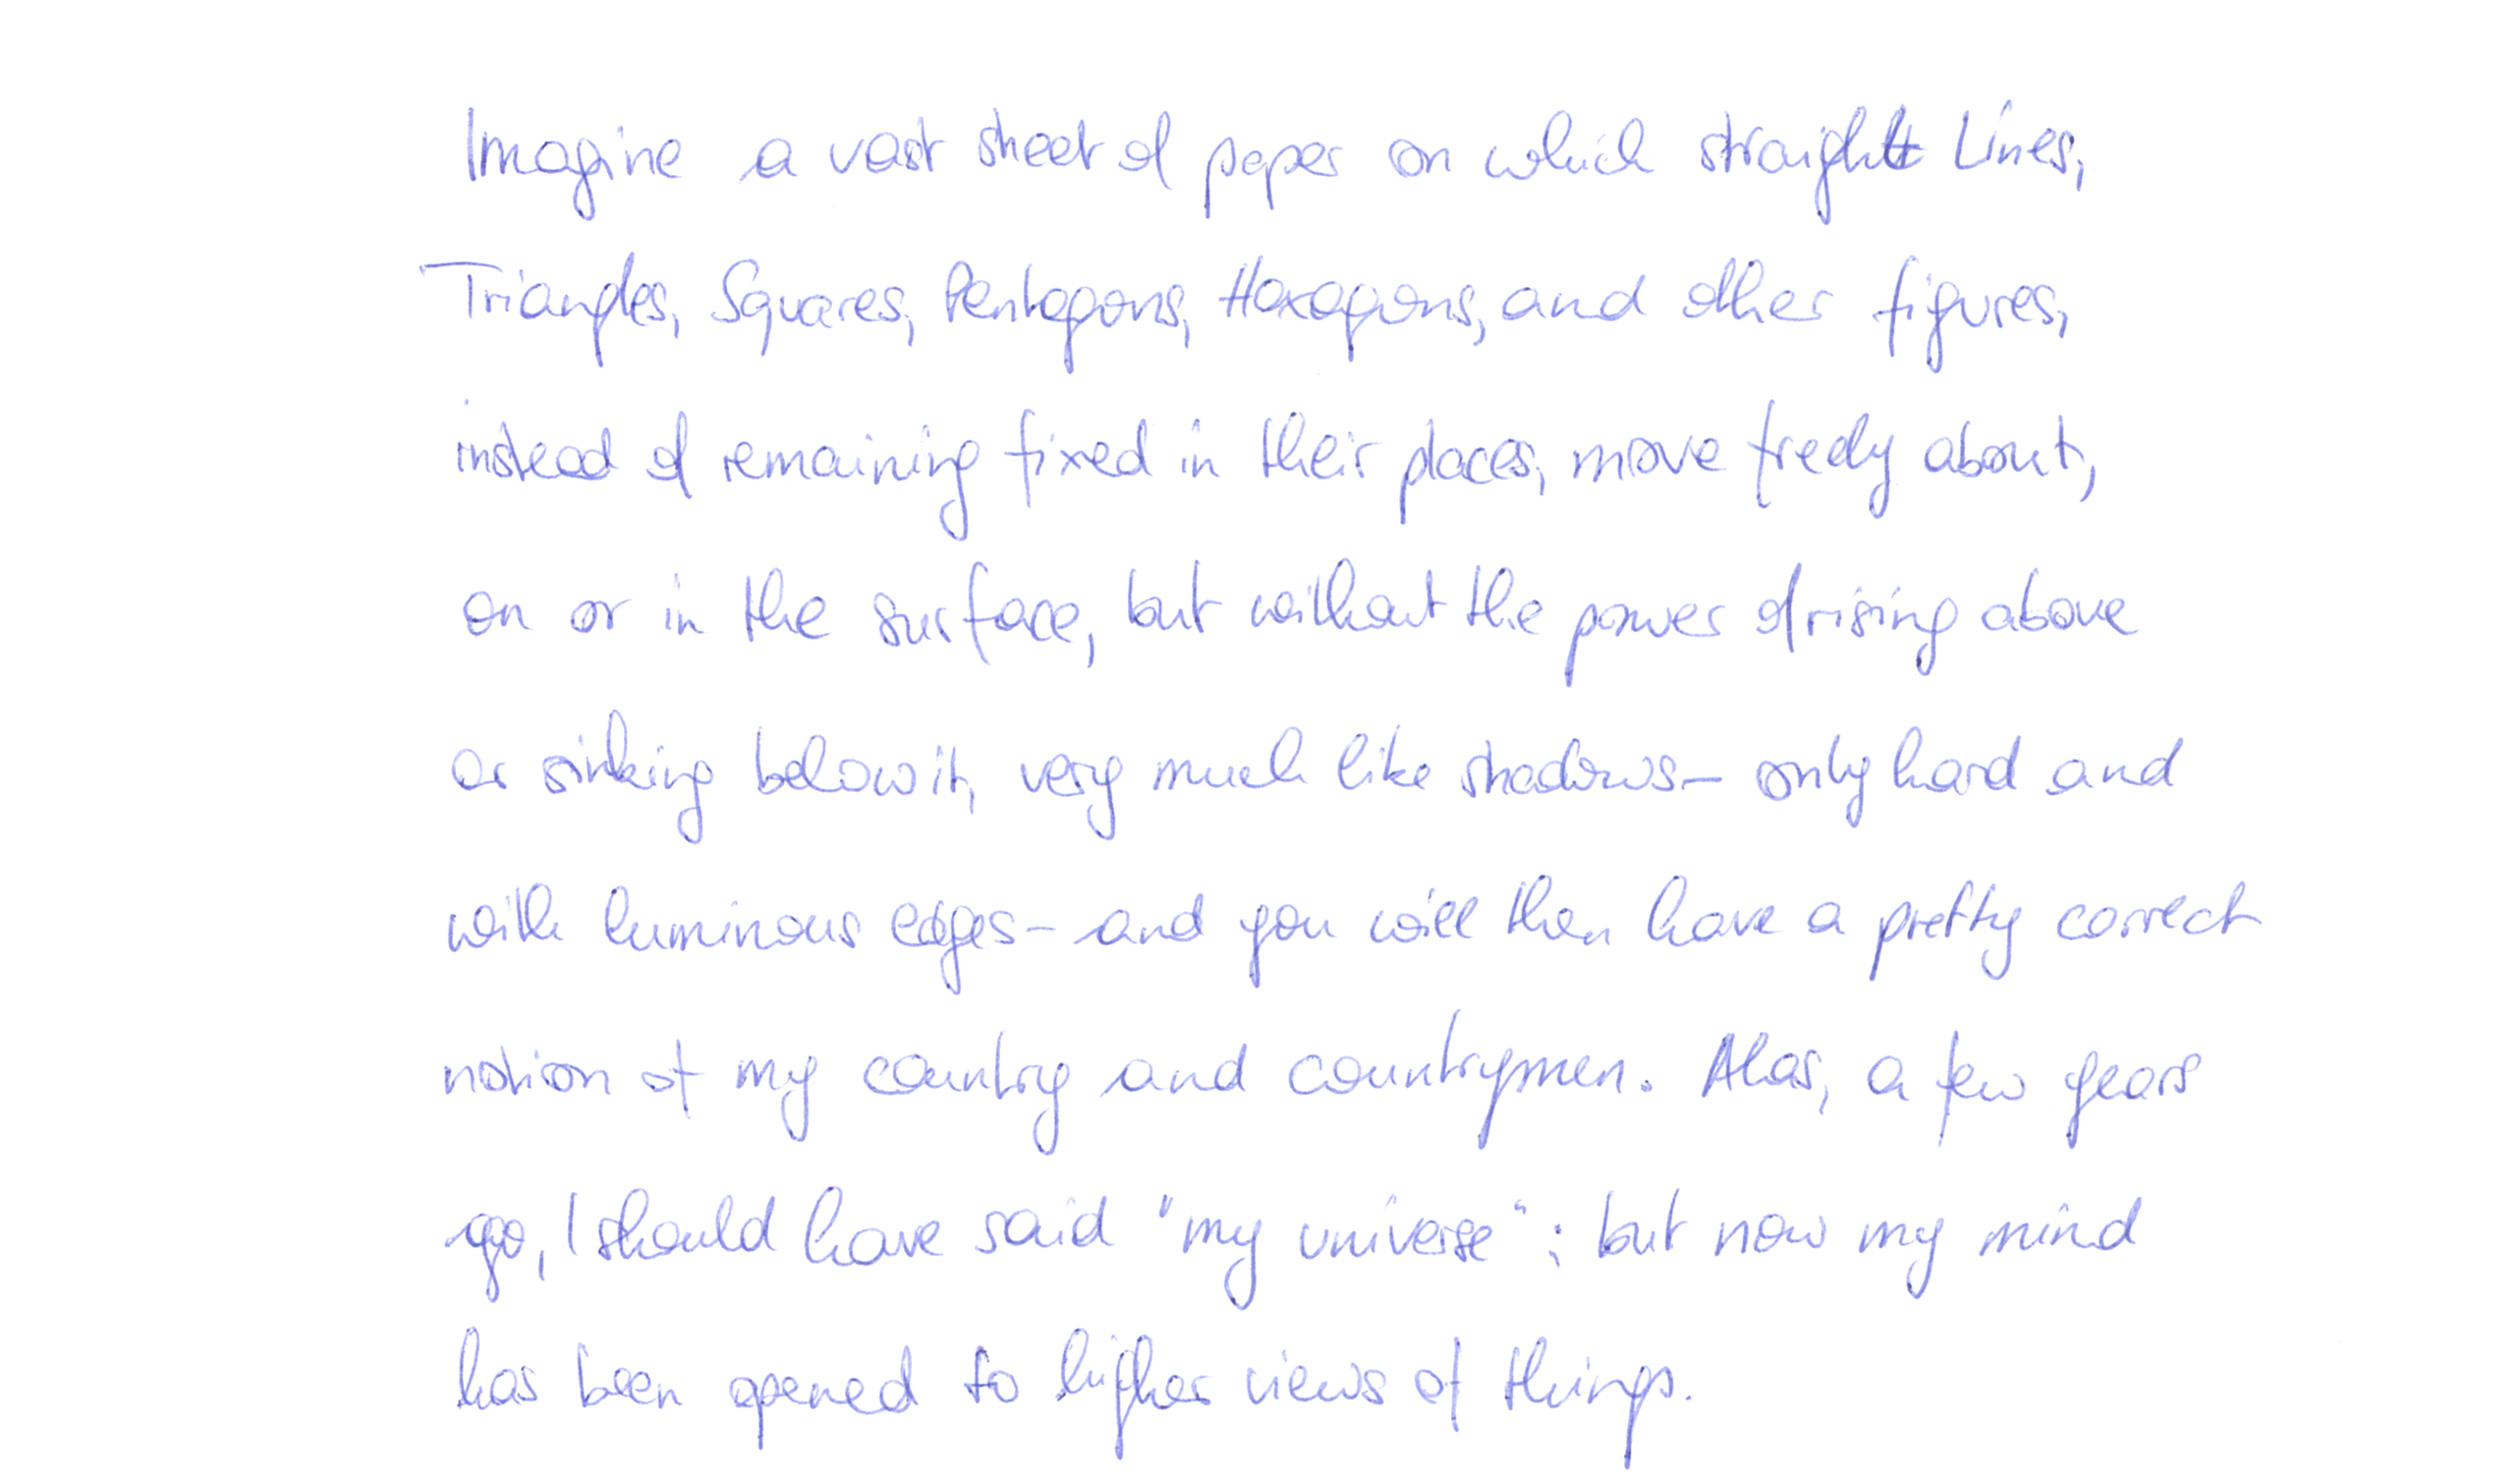 Imagine a vast sheet of paper on which straight Lines,
Triangles, Squares, Pentagons, Hexagons, and other figures,
instead of remaining fixed in their places, move freely about,
on or in the surface, but without the power of rising above
or sinking below it, very much like shadows - only hard and
with luminous edges - and you will then have a pretty correct
notion of my country and countrymen. Alas, a few years
ago, I should have said "my universe"; but now my mind
has been opened to higher views of things.